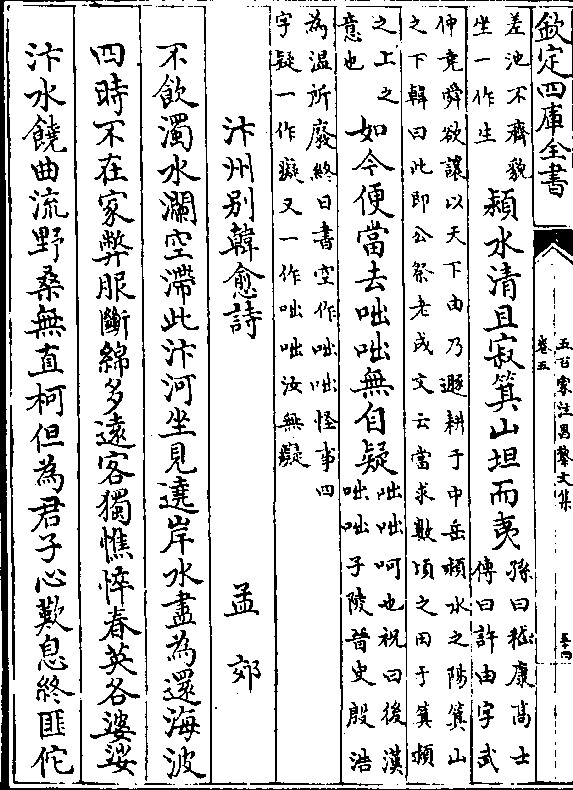 欽定四庫全書
五百家注昌黎文集
卷五
差池不齊貌
坐一作生
潁水清且寂箕山坦而夷
孫曰嵇康高士
傳曰許由字武
仲堯舜欲讓以天下由乃遯耕于中岳潁水之陽箕山
之下韓曰此即公祭老成文云當求數頃之田于箕潁
之上之
意也
如今便當去咄咄無自疑
咄咄呵也祝曰後漢
咄咄子陵晉史殷浩
為溫所廢終日書空作咄咄怪事四
字疑一作癡又一作咄咄汝無癡
汴州别韓愈詩 孟郊
不飲濁水瀾空滯此汴河坐見遶岸水盡為還海波
四時不在家弊服斷綿多遠客獨憔悴春英各婆娑
汴水饒曲流野桑無直柯但為君子心歎息終匪佗